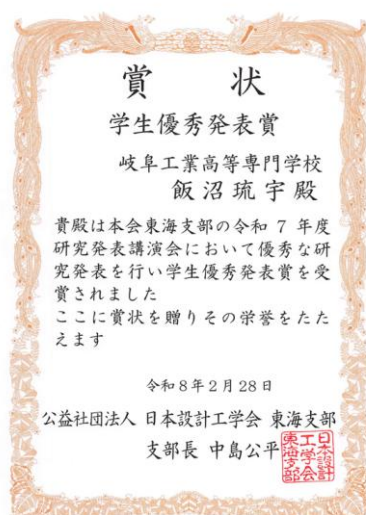 賞状
学生優秀発表賞
岐阜工業高等専門学校
飯沼琉宇殿
貴殿は本会東海支部の令和 7 年度
研究発表講演会において優秀な研
究発表を行い学生優秀発表賞を受
賞されました
ここに賞状を贈りその栄誉をたた
えます
令和8年2月28日
公益社団法人 日本設計工学会 東海支部
支部長 中島公平
日本設計
工学会
東海支部